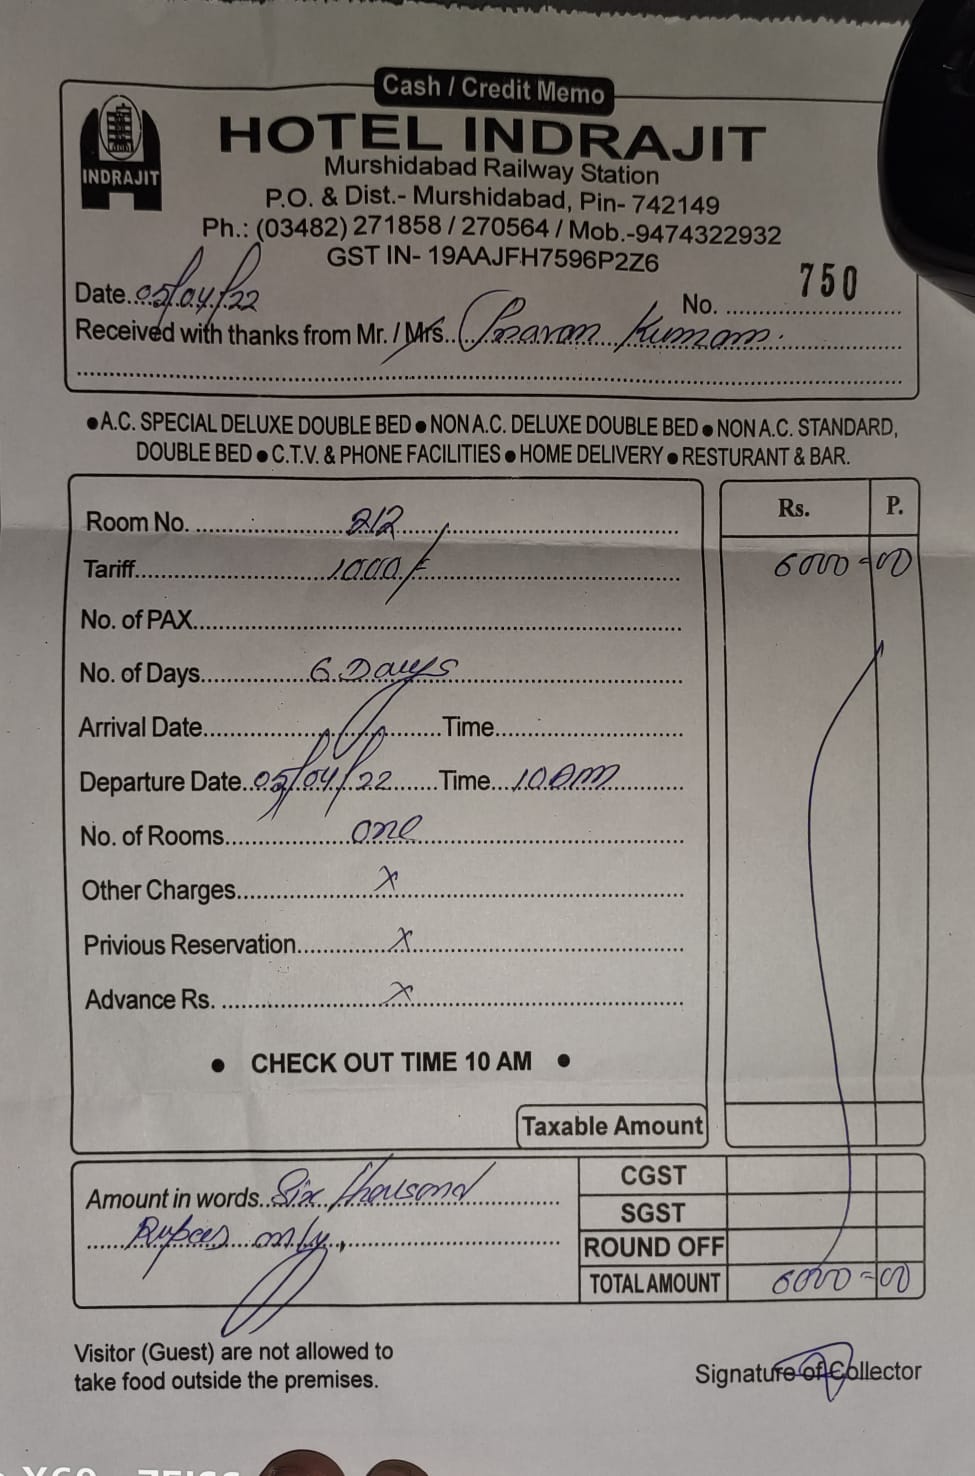 Cash / Credit Memo
INDRAJIT
HOTEL INDRAJIT
Murshidabad Railway Station
P.O. & Dist.- Murshidabad, Pin- 742149
Ph.: (03482) 271858 / 270564 / Mob.-9474322932
GST IN- 19AAJFH7596P2Z6
Date..05/04/22 No. 750
Received with thanks from Mr. / Mrs. Kumar.
●A.C. SPECIAL DELUXE DOUBLE BED ● NON A.C. DELUXE DOUBLE BED ● NON A.C. STANDARD,
DOUBLE BED ● C.T.V. & PHONE FACILITIES ● HOME DELIVERY ● RESTURANT & BAR.
Rs. P.
Room No. 212
Tariff 1000/= 6000=00
No. of PAX
No. of Days 6 Days
Arrival Date Time
Departure Date 05/04/22 Time 10 am
No. of Rooms one
Other Charges x
Privious Reservation x
Advance Rs. x
● CHECK OUT TIME 10 AM ●
Taxable Amount
Amount in words Six thousand
Rupees only,
CGST
SGST
ROUND OFF
TOTAL AMOUNT 6000=00
Visitor (Guest) are not allowed to
take food outside the premises.
Signature of Collector